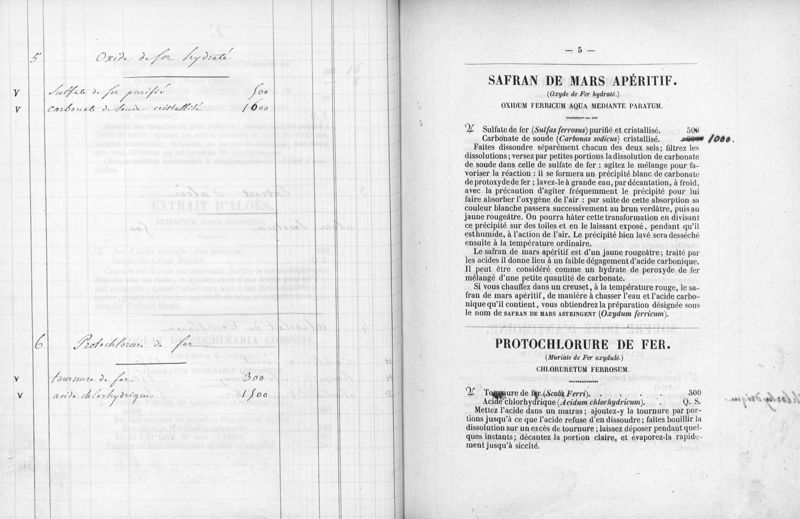 5 Oxide de fer hydraté
v sulfate de fer purifié 500
v carbonate de soude cristallisé 1600
6 Protochlorure de fer
v tournure de fer 300
v acide chlorhydrique 1500
— 5 —
SAFRAN DE MARS APÉRITIF.
(Oxyde de Fer hydraté.)
OXIDUM FERRICUM AQUA MEDIANTE PARATUM.
♃ Sulfate de fer (Sulfas ferrosus) purifié et cristallisé. 500
Carbonate de soude (Carbonas sodicus) cristallisé. 1000.
Faites dissoudre séparément chacun des deux sels; filtrez les
dissolutions; versez par petites portions la dissolution de carbonate
de soude dans celle de sulfate de fer : agitez le mélange pour fa-
voriser la réaction : il se formera un précipité blanc de carbonate
de protoxyde de fer ; lavez-le à grande eau, par décantation, à froid,
avec la précaution d'agiter fréquemment le précipité pour lui
faire absorber l'oxygène de l'air : par suite de cette absorption sa
couleur blanche passera successivement au brun verdâtre, puis au
jaune rougeâtre. On pourra hâter cette transformation en divisant
ce précipité sur des toiles et en le laissant exposé, pendant qu'il
est humide, à l'action de l'air. Le précipité bien lavé sera desséché
ensuite à la température ordinaire.
Le safran de mars apéritif est d'un jaune rougeâtre; traité par
les acides il donne lieu à un faible dégagement d'acide carbonique.
Il peut être considéré comme un hydrate de peroxyde de fer
mélangé d'une petite quantité de carbonate.
Si vous chauffez dans un creuset, à la température rouge, le sa-
fran de mars apéritif, de manière à chasser l'eau et l'acide carbo-
nique qu'il contient, vous obtiendrez la préparation désignée sous
le nom de SAFRAN DE MARS ASTRINGENT (Oxydum ferricum).
PROTOCHLORURE DE FER.
(Muriate de Fer oxydulé.)
CHLORURETUM FERROSUM.
♃ Tournure de fer (Scoba Ferri). . . . . 300
Acide chlorhydrique (Acidum chlorhydricum). . Q. S.
Mettez l'acide dans un matras; ajoutez-y la tournure par por-
tions jusqu'à ce que l'acide refuse d'en dissoudre; faites bouillir la
dissolution sur un excès de tournure; laissez déposer pendant quel-
ques instants; décantez la portion claire, et évaporez-la rapide-
ment jusqu'à siccité.